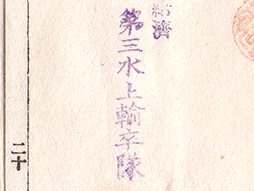 給濟
第三水上輸卒隊
二十